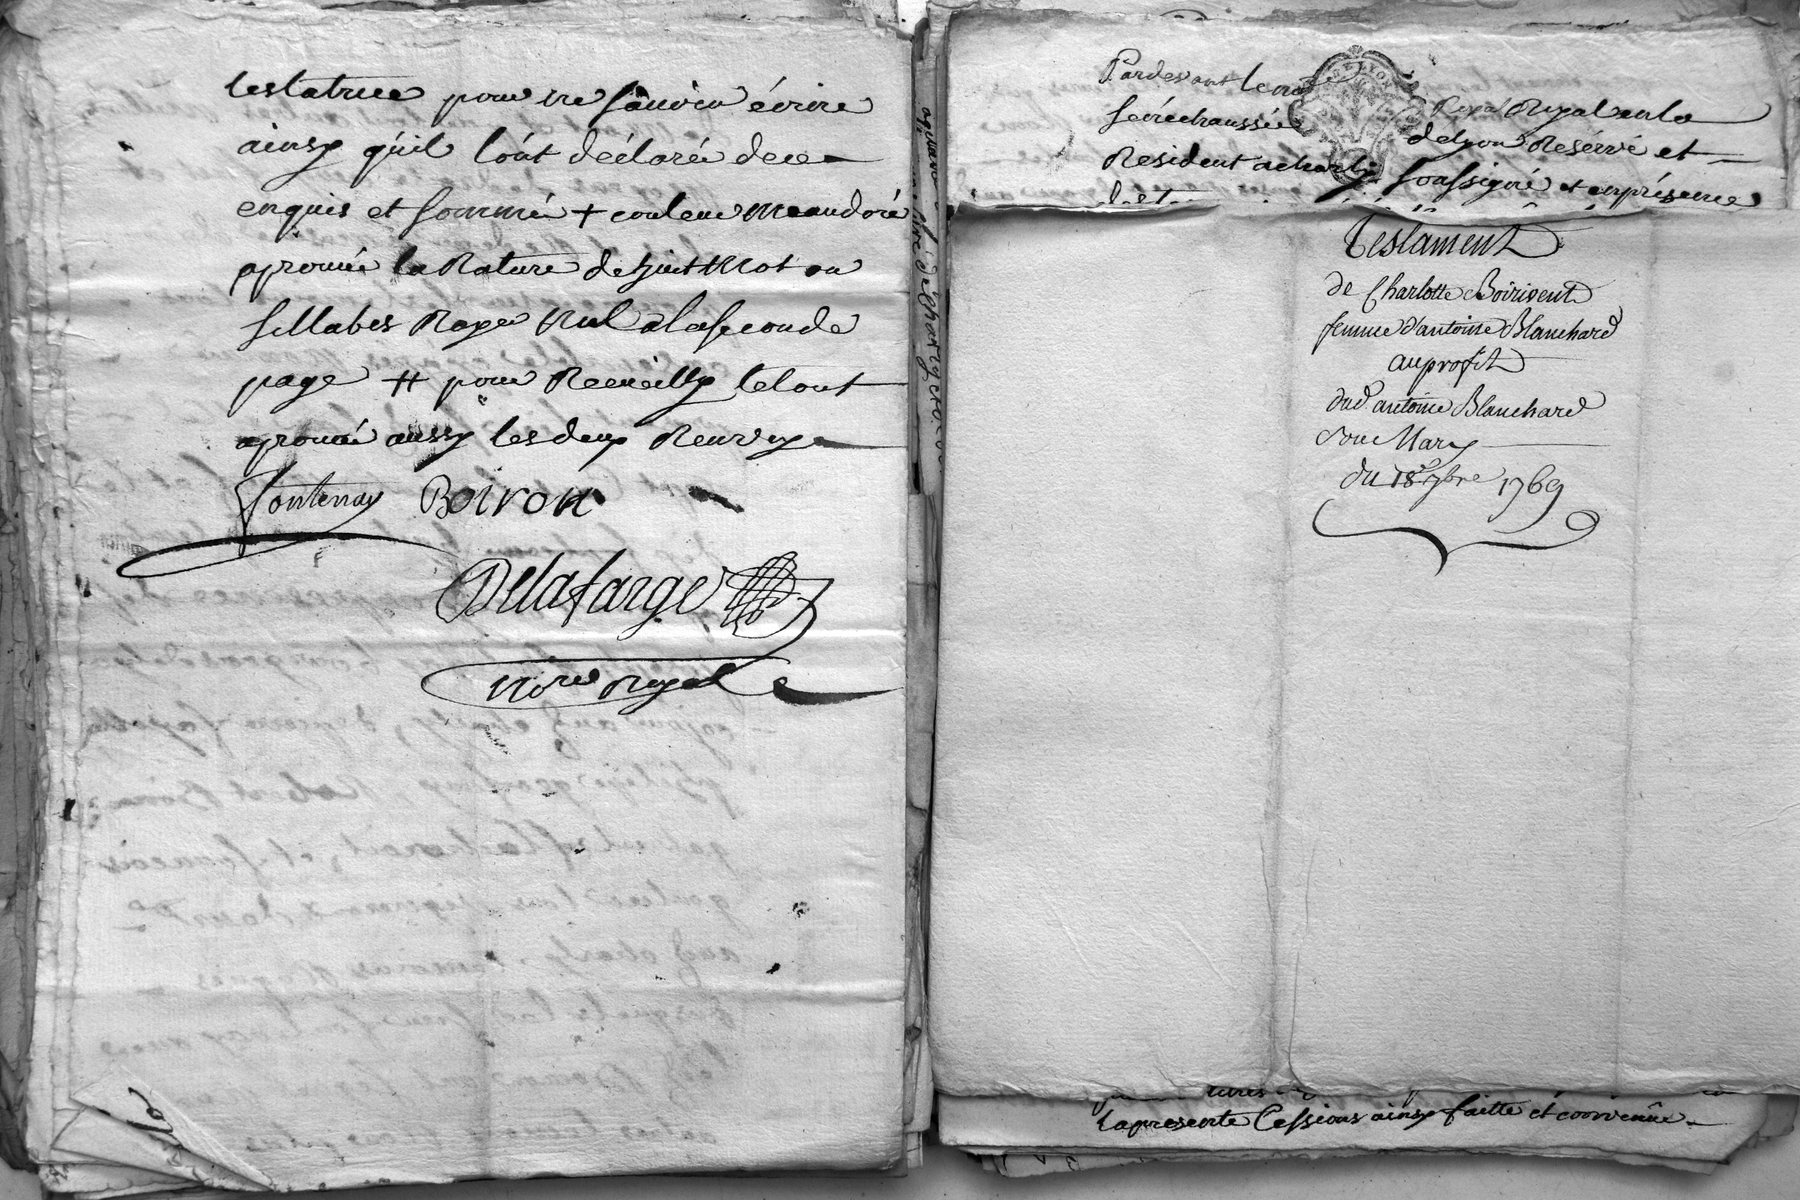 testatrice pour ne sauoir écrire
ainsy qu'il l'ont déclaré de ce
enquis et sommé + couleur
aprouué la Rature de huit Mot ou
sillabes Rayé Nul a la seconde
page # pour Receuilly le tout
aprouué aussy les deux Renvoy
Fontenay Boiron
Delafarge
Nore Royal
Pardevant le no
Royal en la
sénéchaussée
de Lyon Resérvé et
Resident a charly soussigné et en présence
Testament
de Charlotte Boirivent
femme d'antoine Blanchard
au profit
dud antoine Blanchard
son Mary
du 18e 7bre 1769
La presente Cessions ainsy faitte et convenüe